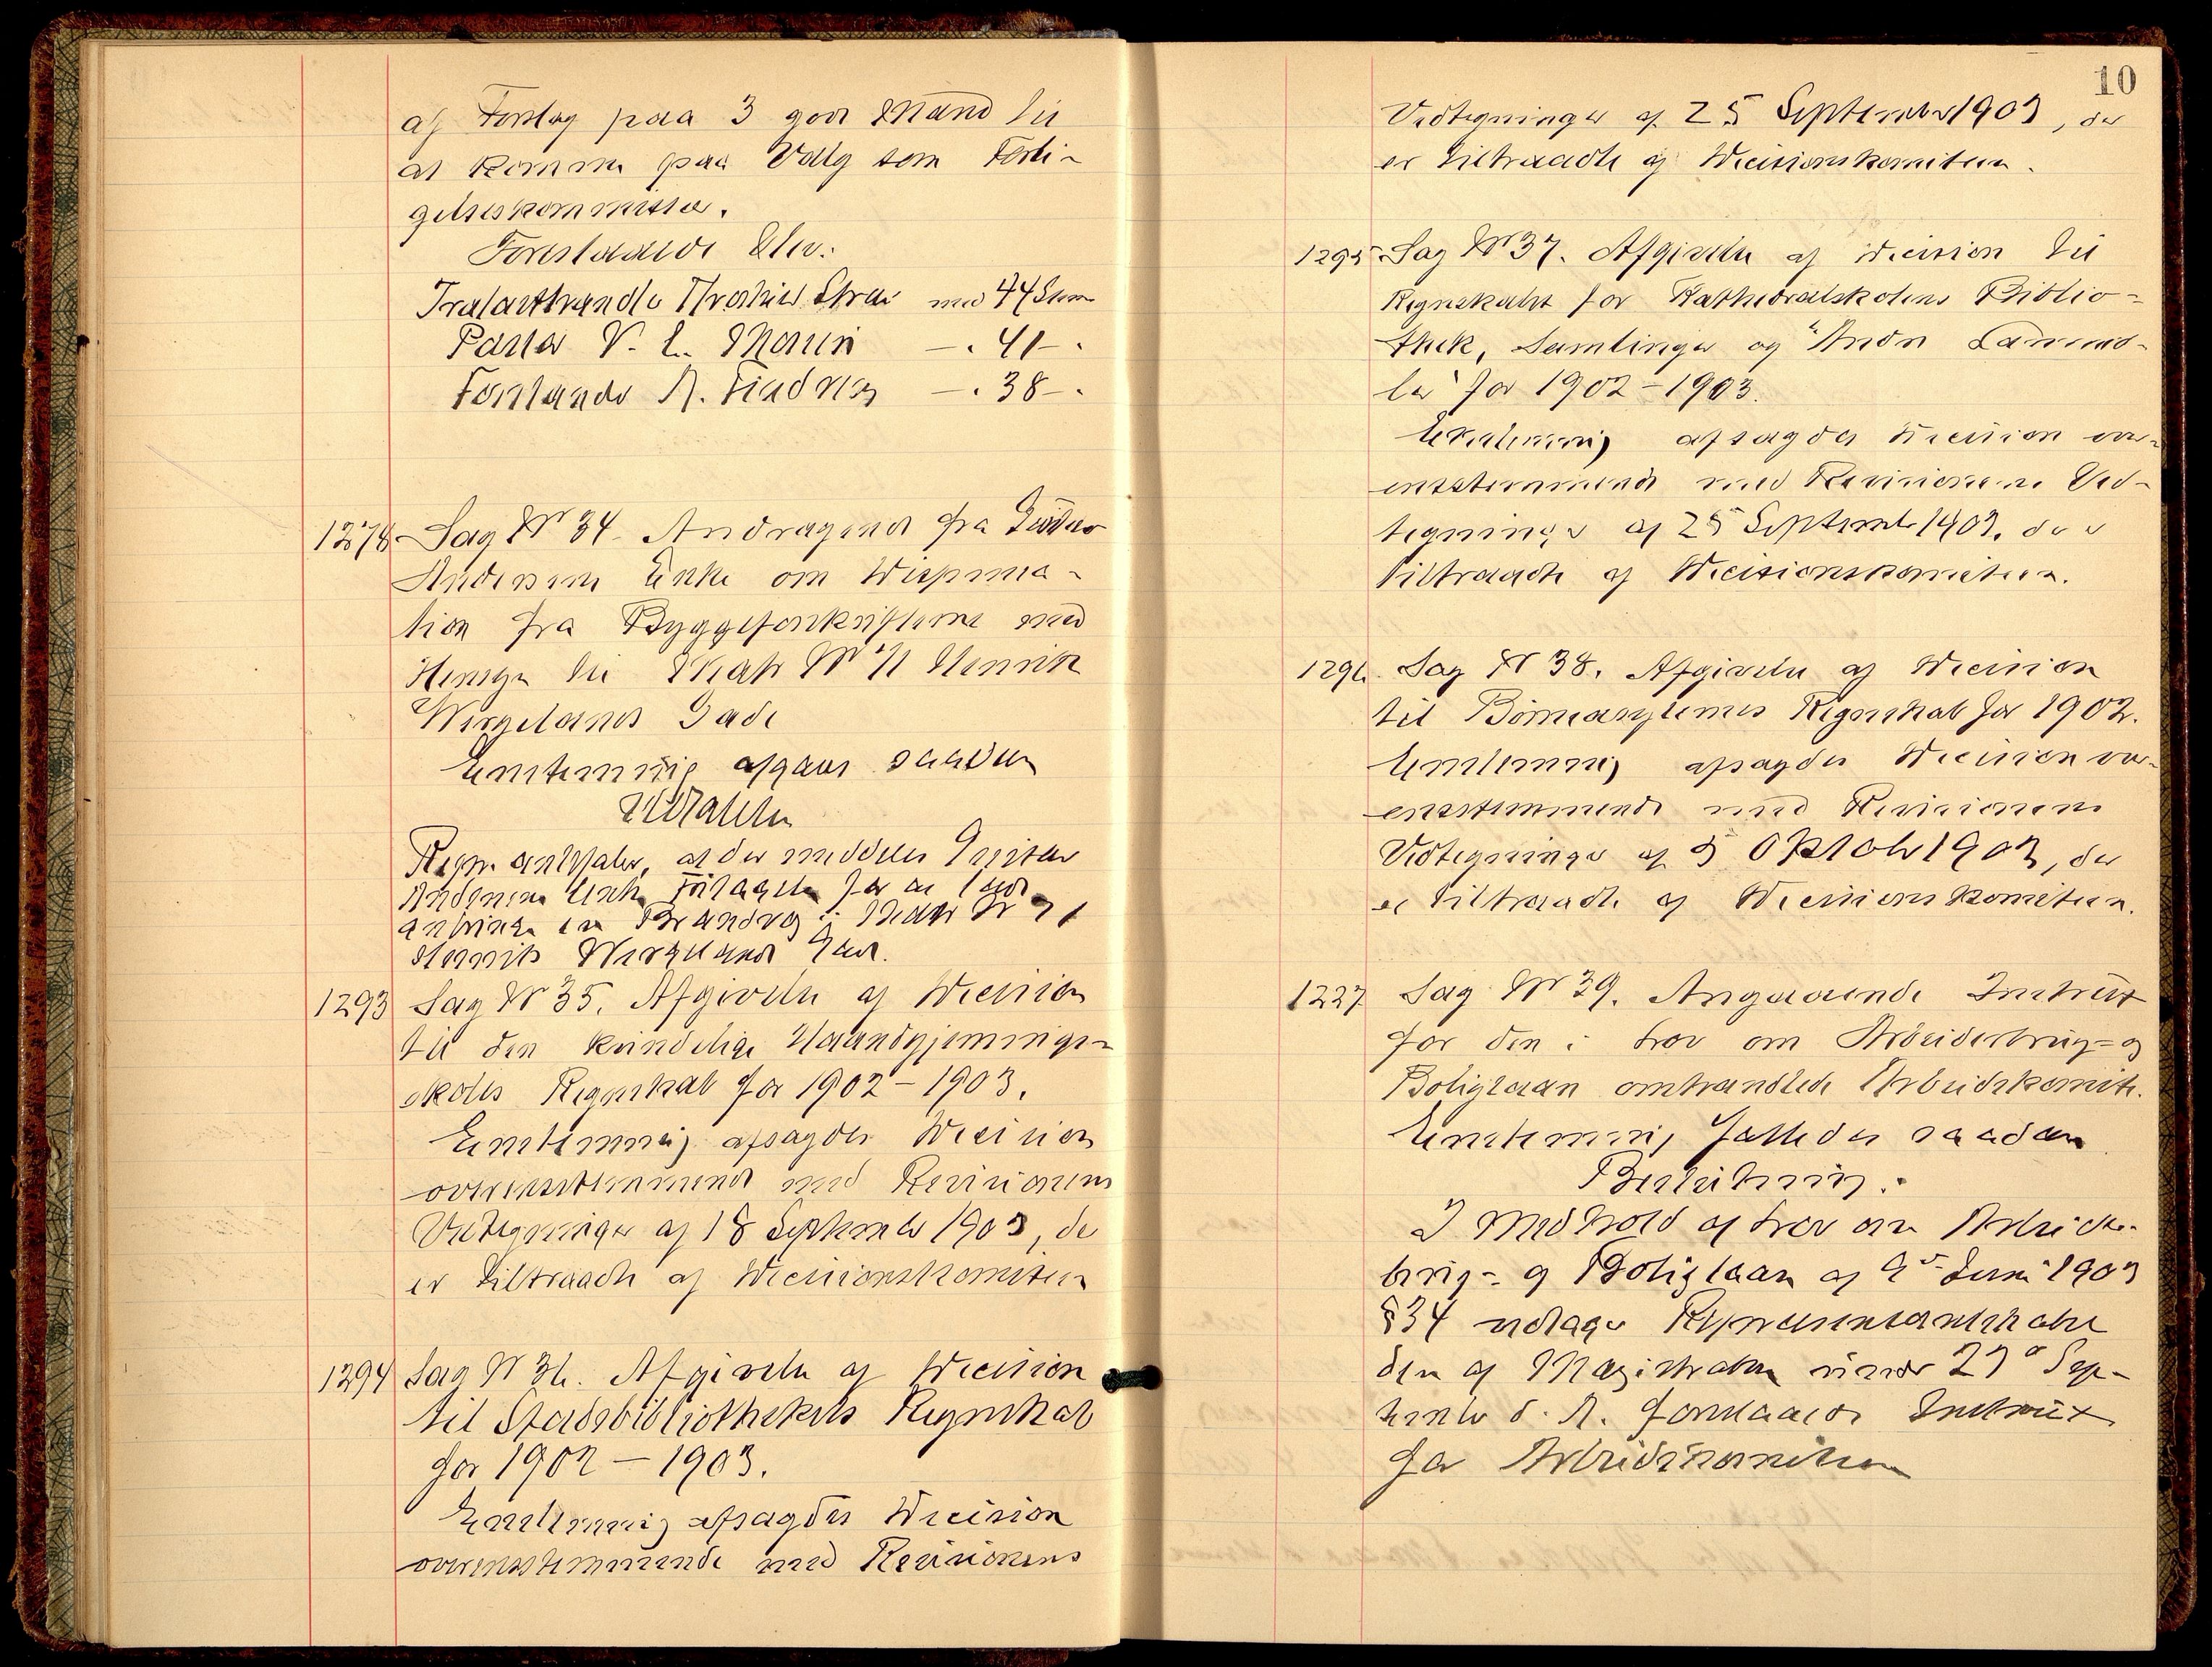 af Forslag paa 3 gode Mænd til
at komme paa Valg som Forli-
gelseskommissær.
Foreslaaede blev:
med 44 Stem
Pastor V. E. Monsen —. 41 —.
Forstander A. —. 38 —.
1278 Sag Nr 34. Andragende fra Gustav
Andersens Enke om Dispensa-
tion fra Byggeforskrifterne med
Hensyn til Matr Nr 71 Henrik
Wergelands Gade
Enstemmig afgaves saadan
Udtalelse
Repr. anbefaler, at der meddeles Gustav
Andersens Enke Tilladelse for at lade
anbringe en i Matr Nr 71
Henrik Wergelands Gade.
1293 Sag Nr 35. Afgivelse af Decision
til den kvindelige Haandgjernings-
skoles Regnskab for 1902 – 1903.
Enstemmig afsagdes Decision
overensstemmende med Revisionens
Vedtegninger af 18 September 1903, der
er tiltraadt af Decisionskomiteen
1294 Sag Nr 36. Afgivelse af Decision
til Stadsbibliothekets Regnskab
for 1902 – 1903.
Enstemmig afsagdes Decision
overensstemmende med Revisionens
10
Vedtegninger af 25 September 1903, der
er tiltraadt af Decisionskomiteen.
1295 Sag Nr 37. Afgivelse af Decision til
Regnskabet for Kathedralskolens Biblio-
thek, Samlinger og "Andre
ler" for 1902 – 1903.
Enstemmig afsagdes Decision over-
ensstemmende med Revisionens Ved-
tegninger af 25 September 1903, der er
tiltraadt af Decisionskomiteen.
1296. Sag Nr 38. Afgivelse af Decision
til Børneasylernes Regnskab for 1902.
Enstemmig afsagdes Decision over-
ensstemmende med Revisionens
Vedtegninger af 5 Oktober 1903, der
er tiltraadt af Decisionskomiteen.
1227 Sag Nr 39. Angaaende Instrux
for den i Lov om Arbeiderbrug- og
Boliglaan omhandlede Arbeidskomite.
Enstemmig fattedes saadan
Beslutning:
I Medhold af Lov om Arbeider-
brug- og Boliglaan af 9de Juni 1903
§ 34 vedtager Repræsentantskabet
den af Magistraten under 29de Sep-
tember d. A. foreslaaede Instrux
for Arbeidskomiteen